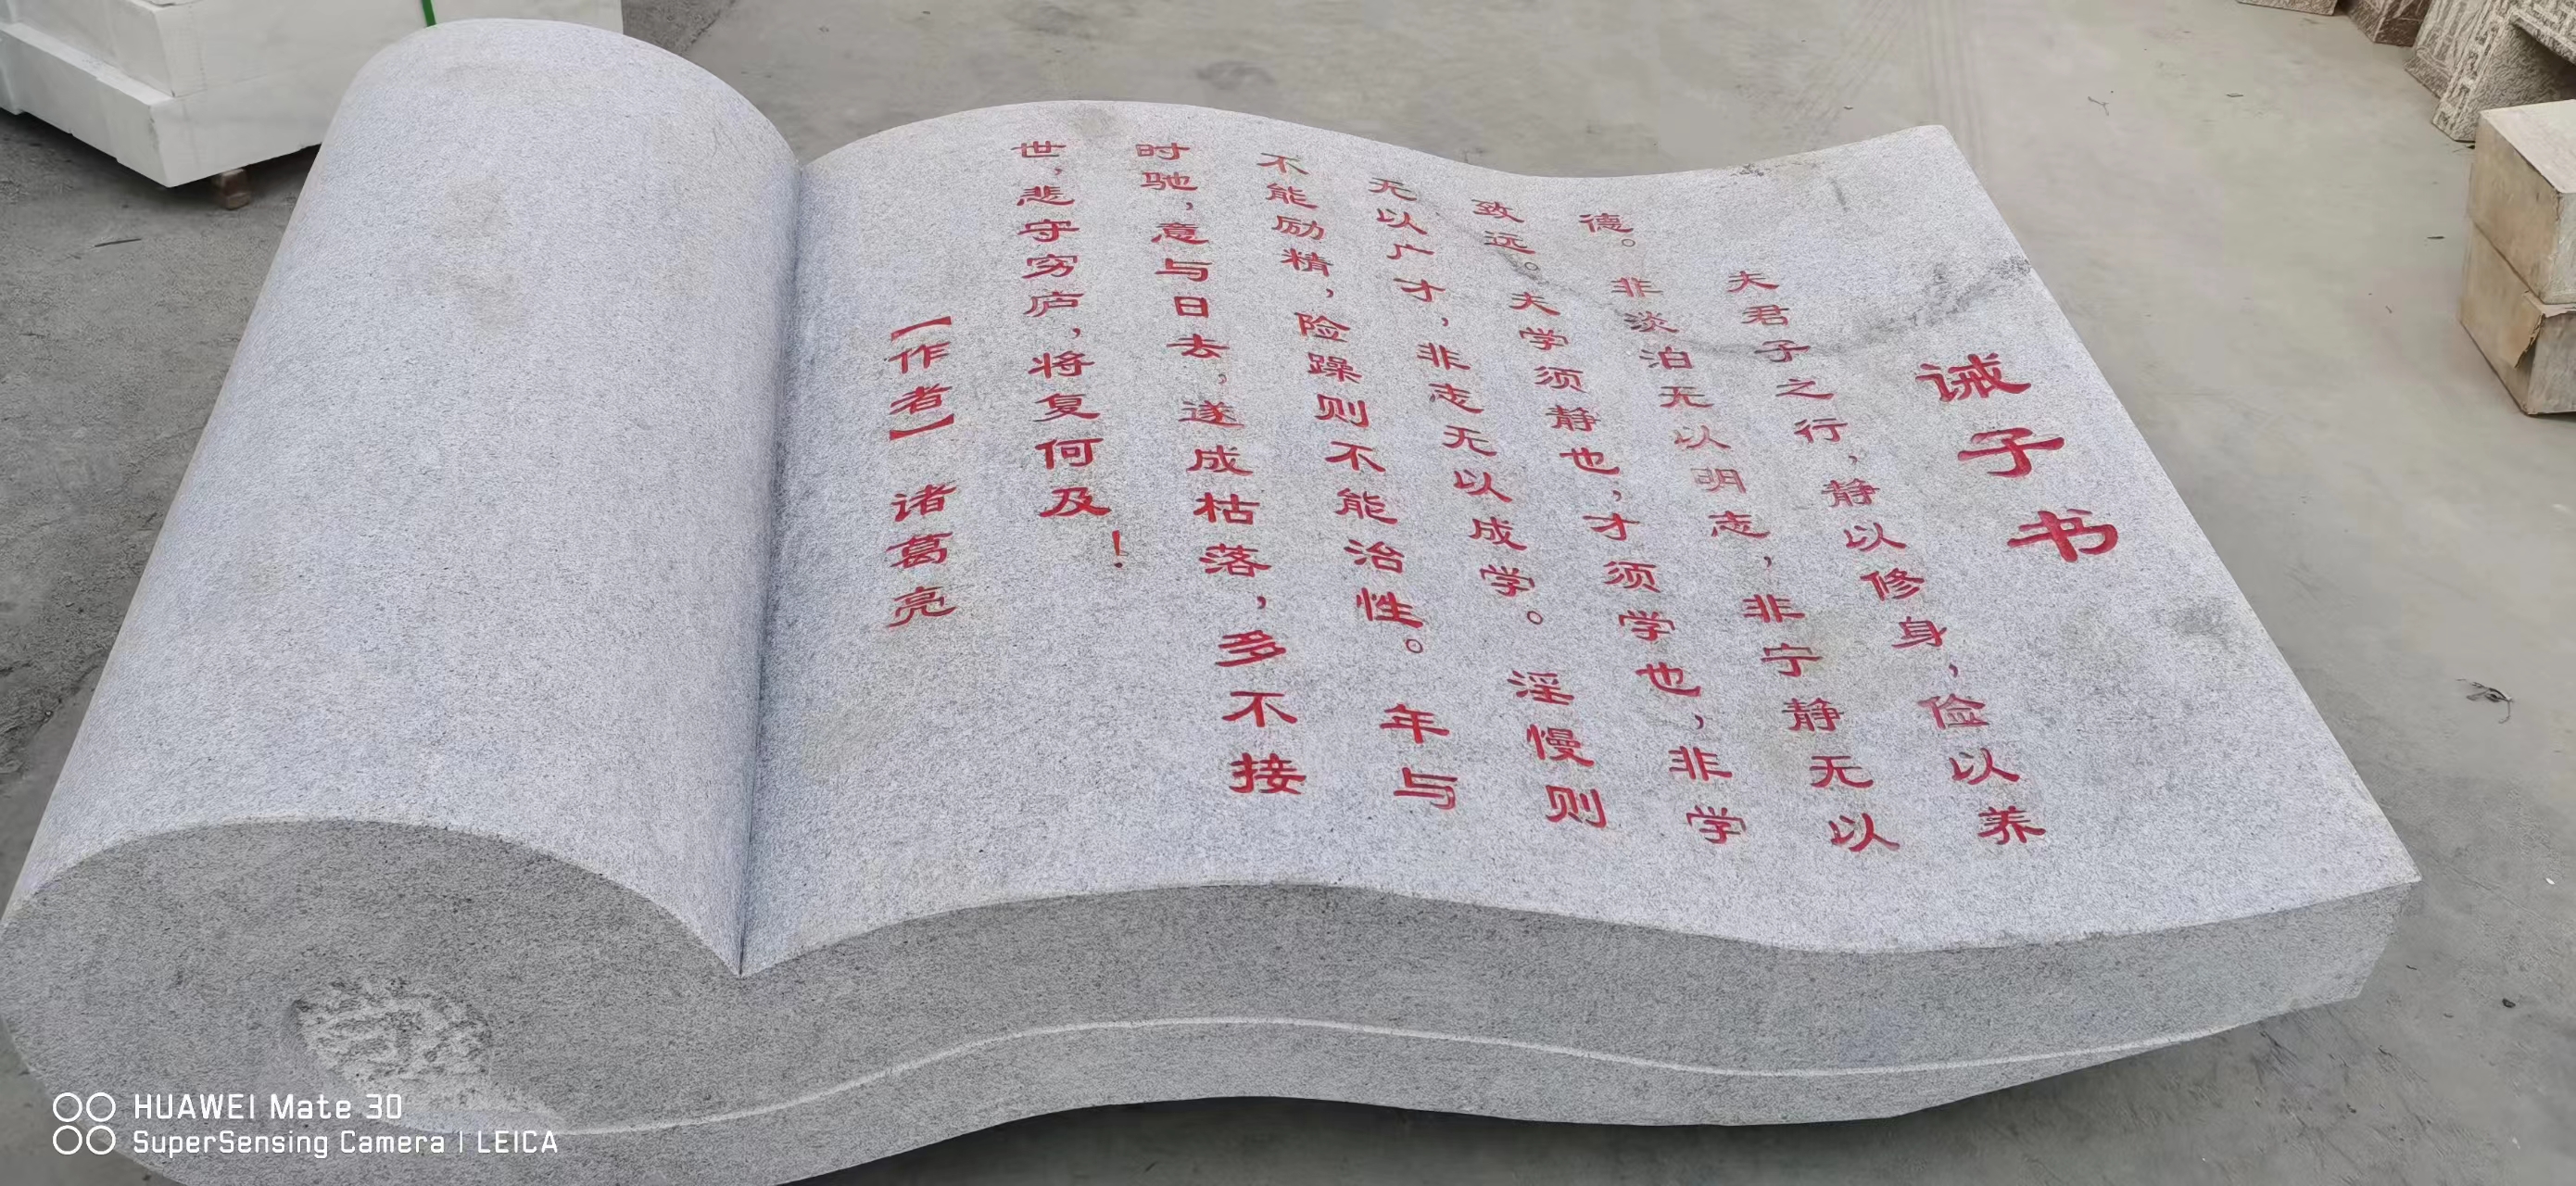 诫子书
夫君子之行，静以修身，俭以养
德。非淡泊无以明志，非宁静无以
致远。夫学须静也，才须学也，非学
无以广才，非志无以成学。淫慢则
不能励精，险躁则不能治性。年与
时驰，意与日去，遂成枯落，多不接
世，悲守穷庐，将复何及！
【作者】诸葛亮
HUAWEI Mate 30
SuperSensing Camera | LEICA